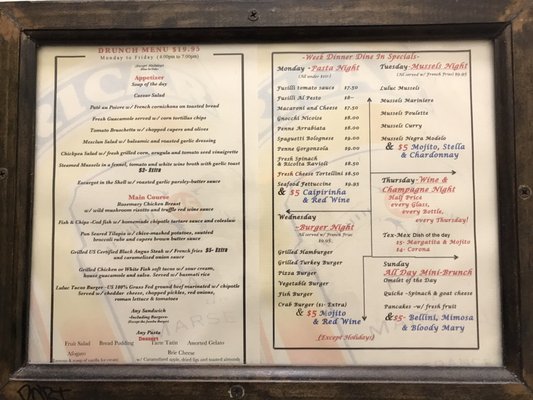 DRUNCH MENU $19.95
Monday to Friday (4:00pm to 7:00pm)
Appetizer
Soup of the day
Caesar Salad
Paté au Poivre w/ French cornichons on toasted bread
Fresh Guacamole served w/ corn tortillas chips
Tomato Bruschetta w/ chopped capers and olives
Mesclun Salad w/ balsamic and roasted garlic dressing
Chickpea Salad w/ fresh grilled corn, arugula and tomato seed vinaigrette
Steamed Mussels in a fennel, tomato and white wine broth with garlic toast
$3- Extra
Escargot in the Shell w/ roasted garlic parsley-butter sauce
Main Course
Rosemary Chicken Breast
w/ wild mushroom risotto and truffle red wine sauce
Fish & Chips -Cod fish w/ homemade chipotle tartare sauce and coleslaw
Pan Seared Tilapia w/ chive-mashed potatoes, sautéed
broccoli rabe and capers brown butter sauce
Grilled US Certified Black Angus Steak w/ French fries $5- Extra
and caramelized onion sauce
Grilled Chicken or White Fish soft tacos w/ sour cream,
house guacamole and salsa. Served w/ basmati rice
Luluc Tacos Burger -US 100% Grass Fed ground beef marinated w/ chipotle
Served w/ cheddar cheese, chopped pickles, red onions,
roman lettuce & tomatoes
Any Sandwich
-Including Burgers-
Any Pasta
Dessert
Fruit Salad Bread Pudding Tarte Tatin Assorted Gelato
Affogato Brie Cheese
w/ Caramelized apple, dried figs and toasted almonds
-Week Dinner Dine In Specials-
Monday -Pasta Night
(All under $10)
Fusilli tomato sauce $7.50
Fusilli Al Pesto $8-
Macaroni and Cheese $7.50
Gnocchi Nicoise $8.00
Penne Arrabiata $8.00
Spaguetti Bolognese $9.00
Penne Gorgonzola $9.00
Fresh Spinach
& Ricotta Ravioli $8.50
Fresh Cheese Tortellini $8.50
Seafood Fettuccine $9.95
& $5 Caipirinha
& Red Wine
Wednesday
-Burger Night
(All served w/ French Fries)
$9.95
Grilled Hamburger
Grilled Turkey Burger
Pizza Burger
Vegetable Burger
Fish Burger
Crab Burger ($1- Extra)
& $5 Mojito
& Red Wine
Tuesday- Mussels Night
(All served w/ French Fries) $9.95
Luluc Mussels
Mussels Mariniere
Mussels Poulette
Mussels Curry
Mussels Negra Modelo
& $5 Mojito, Stella
& Chardonnay
Thursday- Wine &
Champagne Night
Half Price
every Glass,
every Bottle,
every Thursday!
Tex-Mex Dish of the day
$5- Margarita & Mojito
$4- Corona
Sunday
All Day Mini-Brunch
Omelet of the Day
Quiche -Spinach & goat cheese
Pancakes -w/ fresh fruit
&$5- Bellini, Mimosa
& Bloody Mary
(Except Holidays)